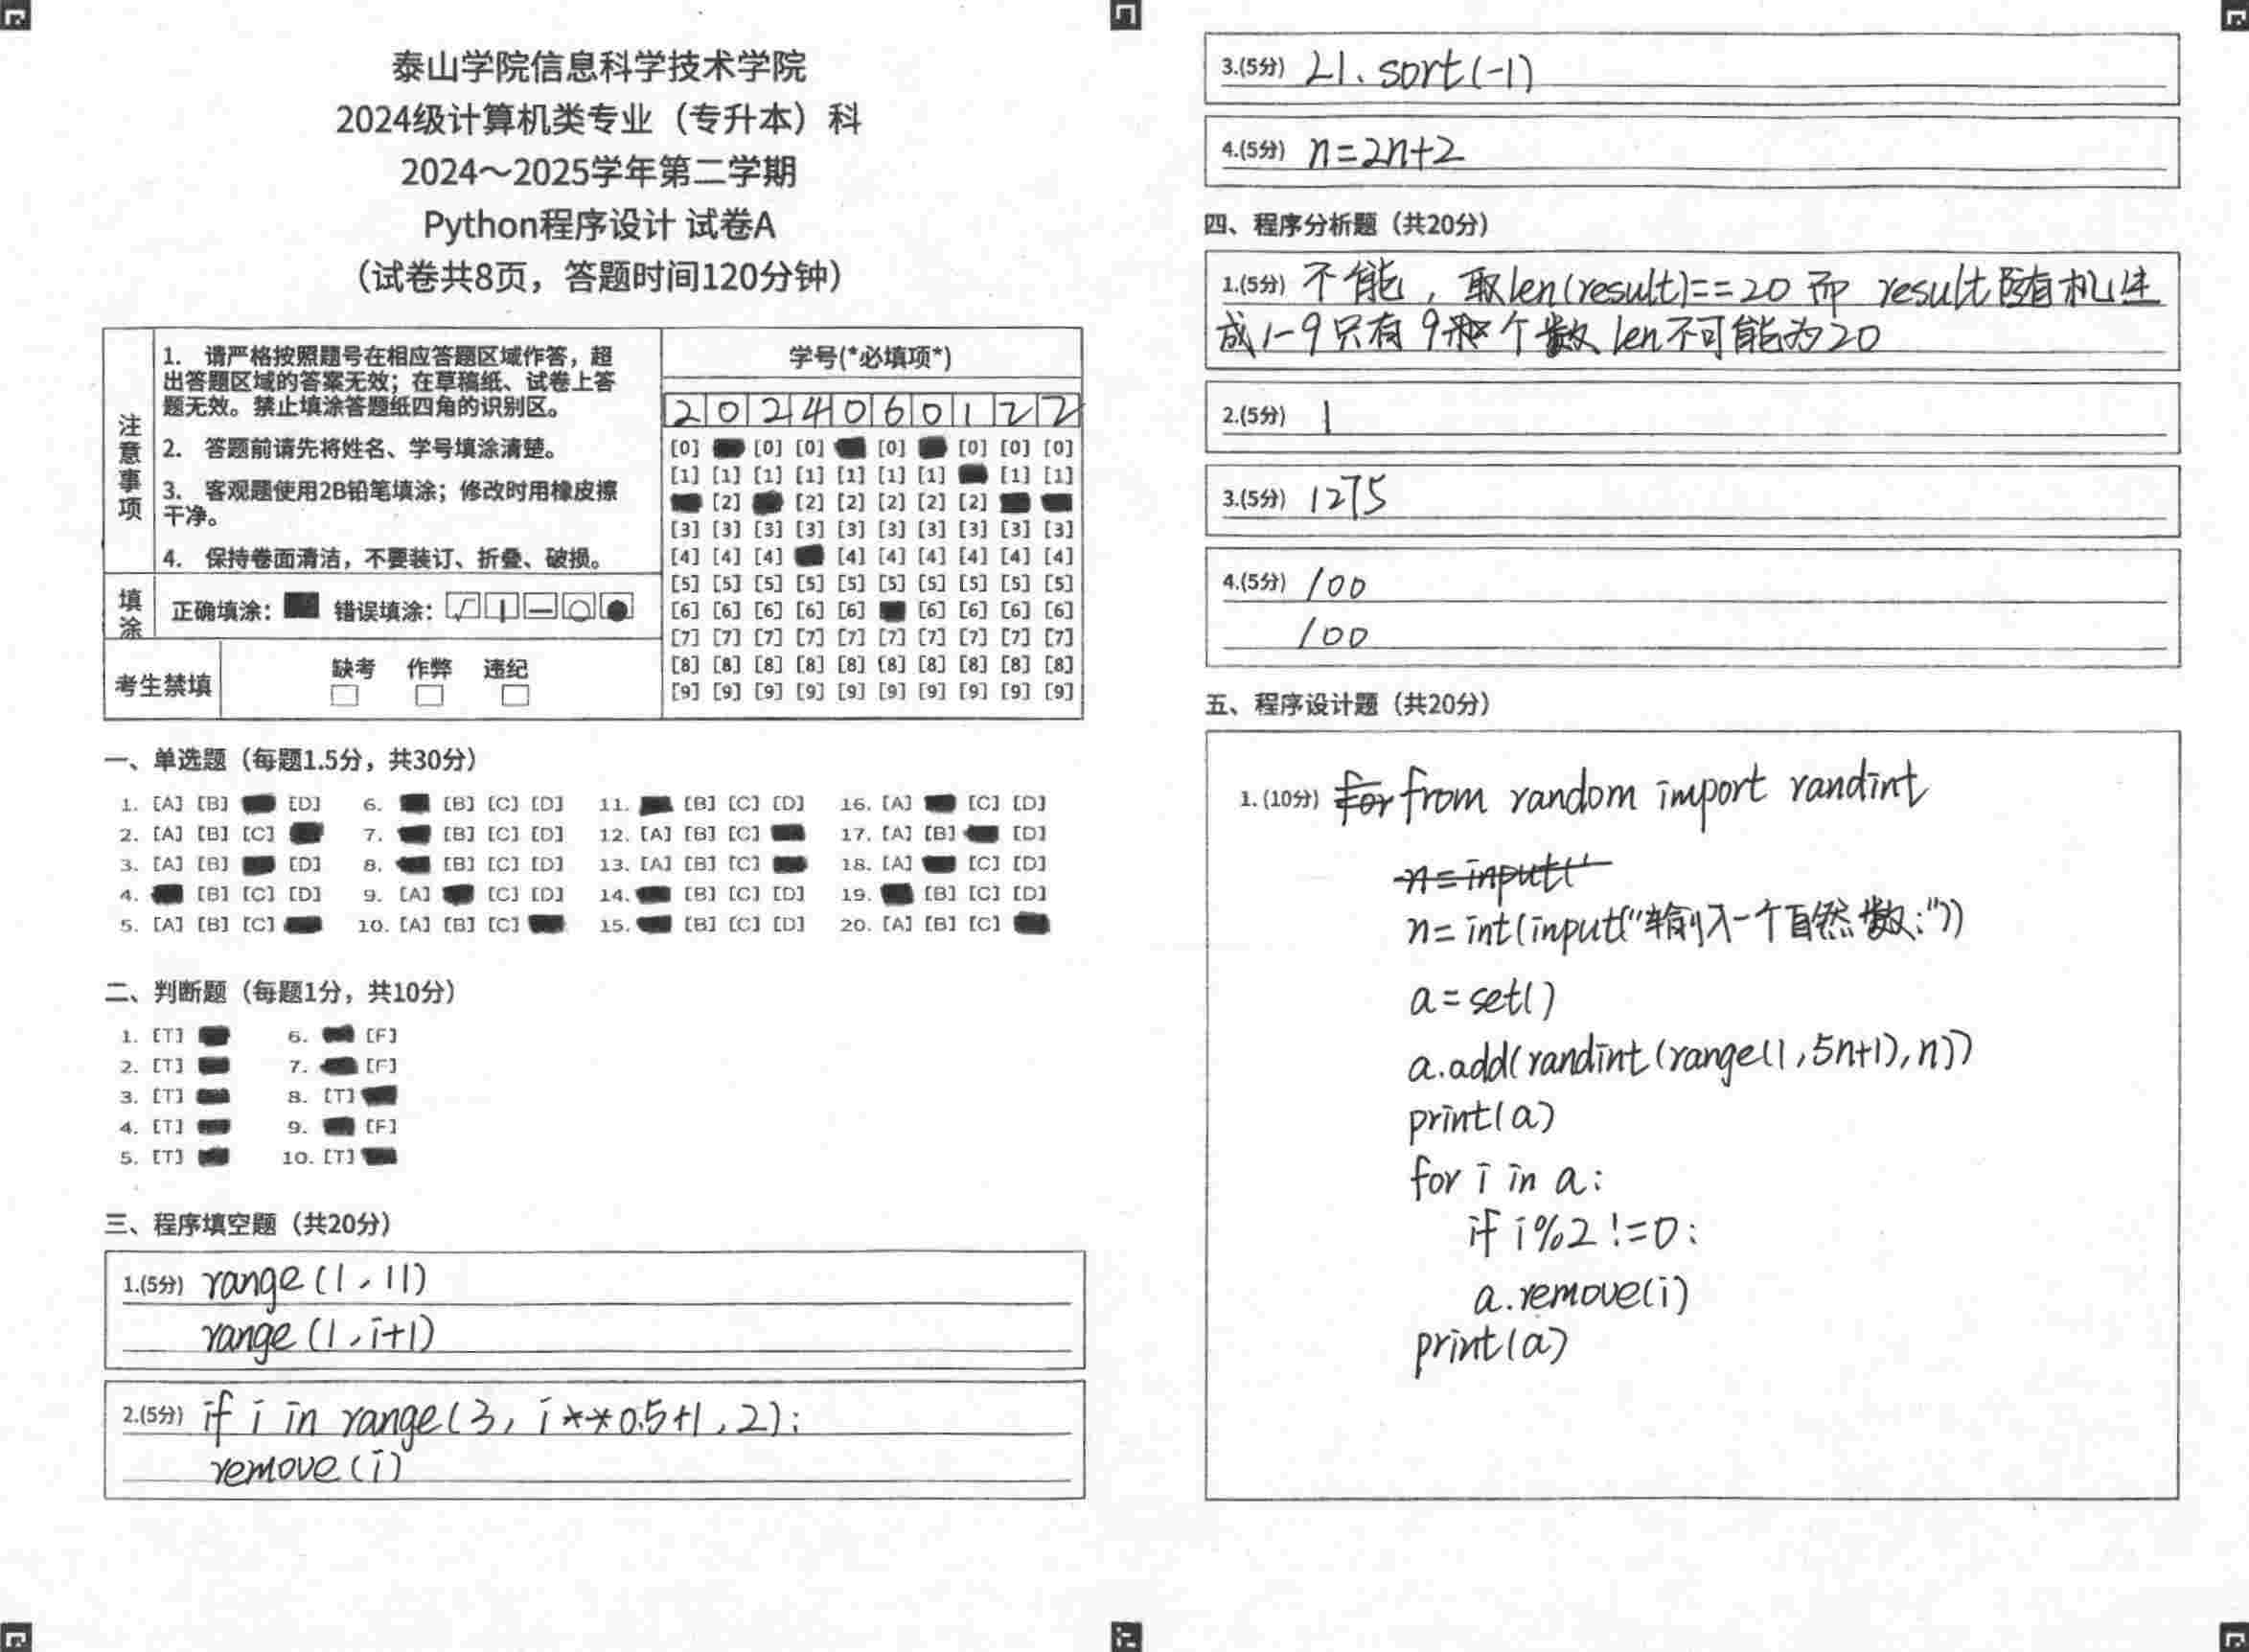 泰山学院信息科学技术学院
2024级计算机类专业（专升本）科
2024～2025学年第二学期
Python程序设计 试卷A
（试卷共8页，答题时间120分钟）
注意事项
1. 请严格按照题号在相应答题区域作答，超
出答题区域的答案无效；在草稿纸、试卷上答
题无效。禁止填涂答题纸四角的识别区。
2. 答题前请先将姓名、学号填涂清楚。
3. 客观题使用2B铅笔填涂；修改时用橡皮擦
干净。
4. 保持卷面清洁，不要装订、折叠、破损。
填涂
正确填涂： 错误填涂：
考生禁填
缺考 作弊 违纪
学号(*必填项*)
2 0 2 4 0 6 0 1 2 2
[0] [0] [0] [0] [0] [0] [0]
[1] [1] [1] [1] [1] [1] [1] [1] [1]
[2] [2] [2] [2] [2] [2]
[3] [3] [3] [3] [3] [3] [3] [3] [3] [3]
[4] [4] [4] [4] [4] [4] [4] [4] [4]
[5] [5] [5] [5] [5] [5] [5] [5] [5] [5]
[6] [6] [6] [6] [6] [6] [6] [6] [6]
[7] [7] [7] [7] [7] [7] [7] [7] [7] [7]
[8] [8] [8] [8] [8] [8] [8] [8] [8] [8]
[9] [9] [9] [9] [9] [9] [9] [9] [9] [9]
一、单选题（每题1.5分，共30分）
1. [A] [B] [D] 6. [B] [C] [D] 11. [B] [C] [D] 16. [A] [C] [D]
2. [A] [B] [C] 7. [B] [C] [D] 12. [A] [B] [C] 17. [A] [B] [D]
3. [A] [B] [D] 8. [B] [C] [D] 13. [A] [B] [C] 18. [A] [C] [D]
4. [B] [C] [D] 9. [A] [C] [D] 14. [B] [C] [D] 19. [B] [C] [D]
5. [A] [B] [C] 10. [A] [B] [C] 15. [B] [C] [D] 20. [A] [B] [C]
二、判断题（每题1分，共10分）
1. [T] 6. [F]
2. [T] 7. [F]
3. [T] 8. [T]
4. [T] 9. [F]
5. [T] 10. [T]
三、程序填空题（共20分）
1.(5分) range(1, 11)
range(1, i+1)
2.(5分) if i in range(3, i**0.5+1, 2):
remove(i)
3.(5分) L1.sort(-1)
4.(5分) n=2n+2
四、程序分析题（共20分）
1.(5分) 不能, 取len(result)==20 而 result随机生
成1-9只有9个数 len不可能为20
2.(5分) 1
3.(5分) 1275
4.(5分) 100
100
五、程序设计题（共20分）
1. (10分) for from random import randint
n=input('
n=int(input("输入一个自然数:"))
a=set()
a.add(randint(range(1,5n+1),n))
print(a)
for i in a:
if i%2!=0:
a.remove(i)
print(a)